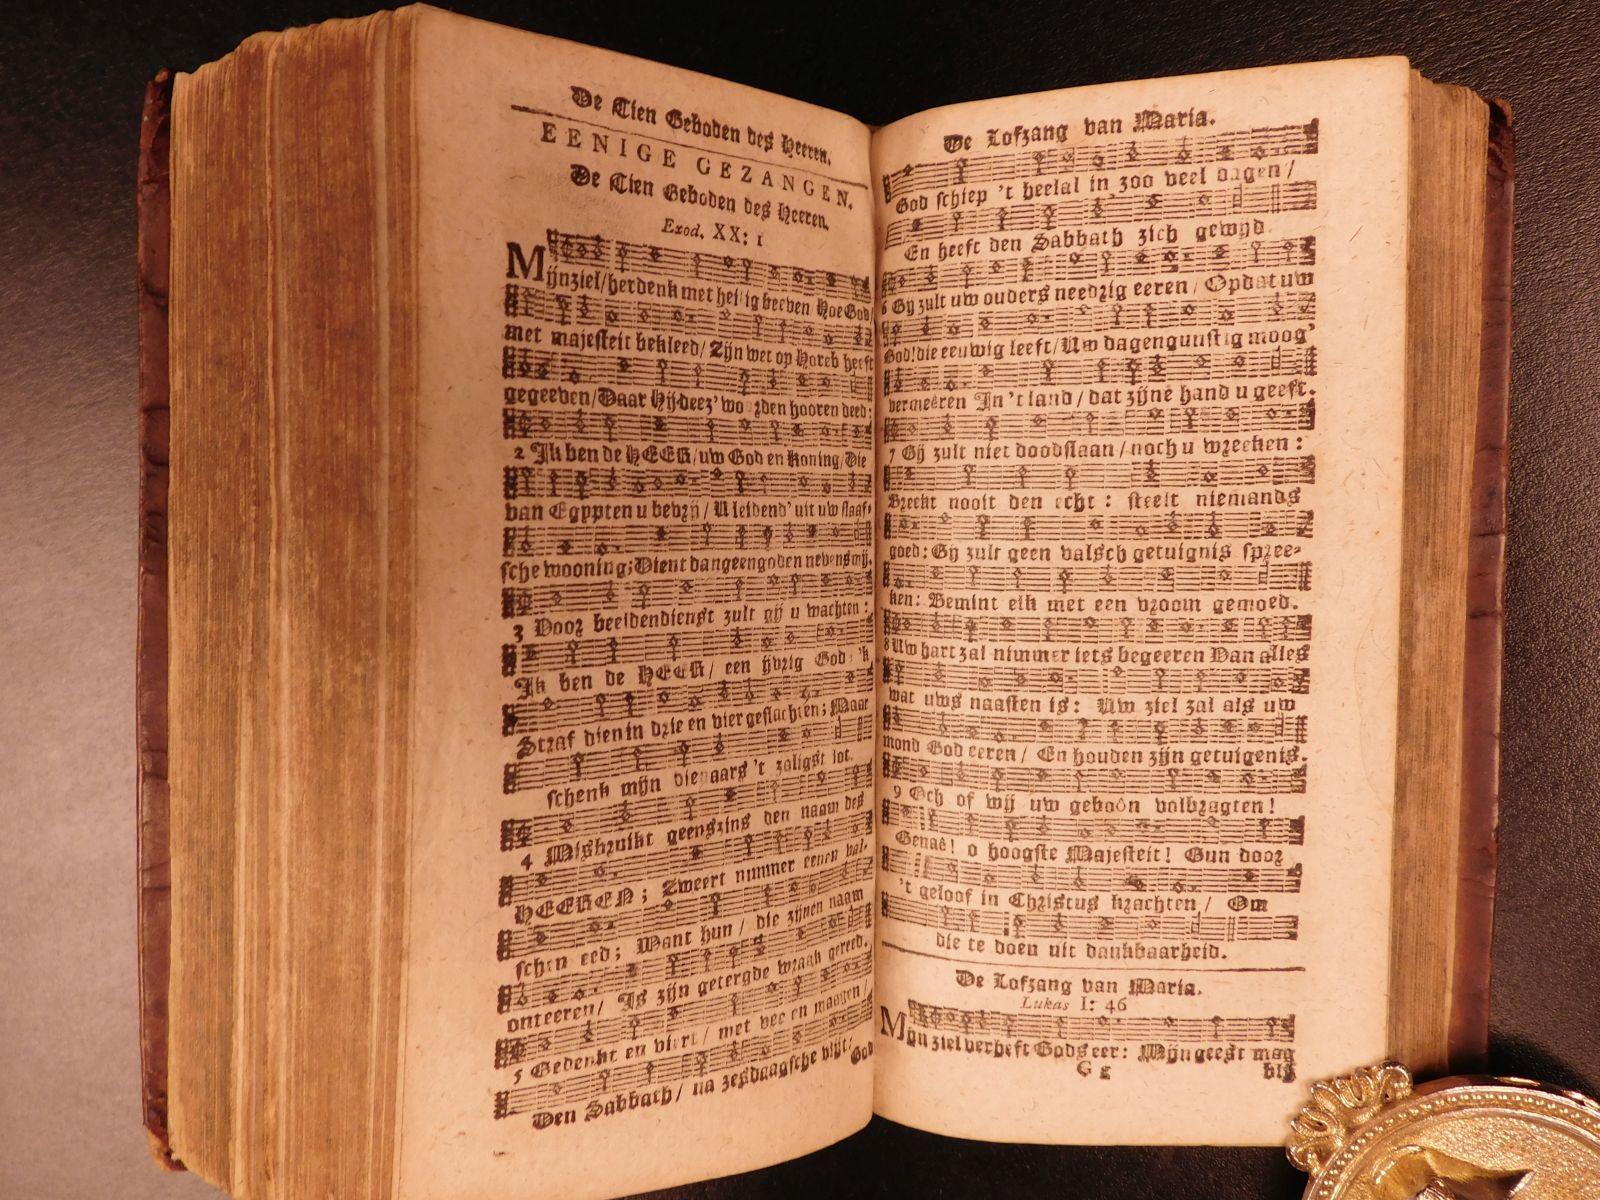 De Tien Geboden des Heeren.
EENIGE GEZANGEN.
De Tien Geboden des Heeren.
Exod. XX: 1
Mijn ziel/ herdenk met heilig beeven Hoe God/
met majesteit bekleed/ Zijn wet op Horeb heeft
gegeeven/ Daar Hij deez' woorden hooren deed:
2 Ik ben de HEER/ uw God en Koning/ Die
van Egypten u bevrij/ U leidend' uit uw slaaf-
sche wooning; Dient dan geen goden nevens mij.
3 Voor beeldendienst zult gij u wachten:
Ik ben de HEER/ een ijvrig God/ 'k
Straf dien in drie en vier geslachten; Maar
schenk mijn dienaars 't zaligst lot.
4 Misbruikt geenszins den naam des
HEEREN; Zweert nimmer eenen val-
schen eed; Want hun/ die zijnen naam
onteeren/ Is zijn getergde wraak gereed.
5 Gedenkt en viert/ met vee en maagen/
Den Sabbath/ na zesdaagsche vlijt/
God
De Lofzang van Maria.
God schiep 't heelal in zoo veel dagen/
En heeft den Sabbath zich gewijd.
6 Gij zult uw ouders needrig eeren/ Opdat uw
God/ die eeuwig leeft/ Uw dagen gunstig moog'
vermeêren In 't land/ dat zijne hand u geeft.
7 Gij zult niet doodslaan/ noch u wreeken:
Breekt nooit den echt: steelt niemands
goed: Gij zult geen valsch getuignis spree-
ken: Bemint elk met een vroom gemoed.
8 Uw hart zal nimmer iets begeeren Van alles
wat uws naasten is: Uw ziel zal als uw
mond God eeren/ En houden zijn getuigenis.
9 Och of wij uw geboôn volbragten!
Genaê! o hoogste Majesteit! Gun door
't geloof in Christus krachten/ Om
die te doen uit dankbaarheid.
De Lofzang van Maria.
Lukas I: 46
Mijn ziel verheft Gods eer: Mijn geest mag
Gg
blij